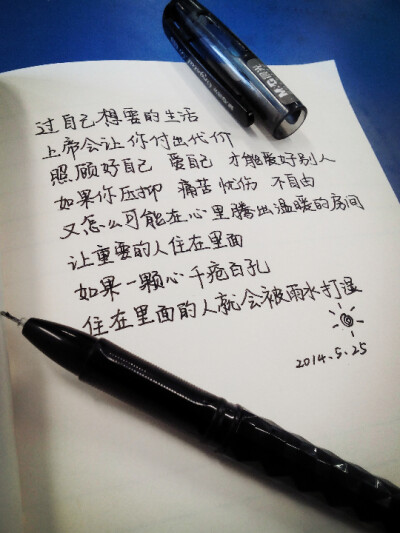 M&G 晨光
过自己想要的生活
上帝会让你付出代价
照顾好自己 爱自己 才能爱好别人
如果你压抑 痛苦忧伤 不自由
又怎么可能在心里腾出温暖的房间
让重要的人住在里面
如果一颗心千疮百孔
住在里面的人就会被雨水打湿
2014.5.25